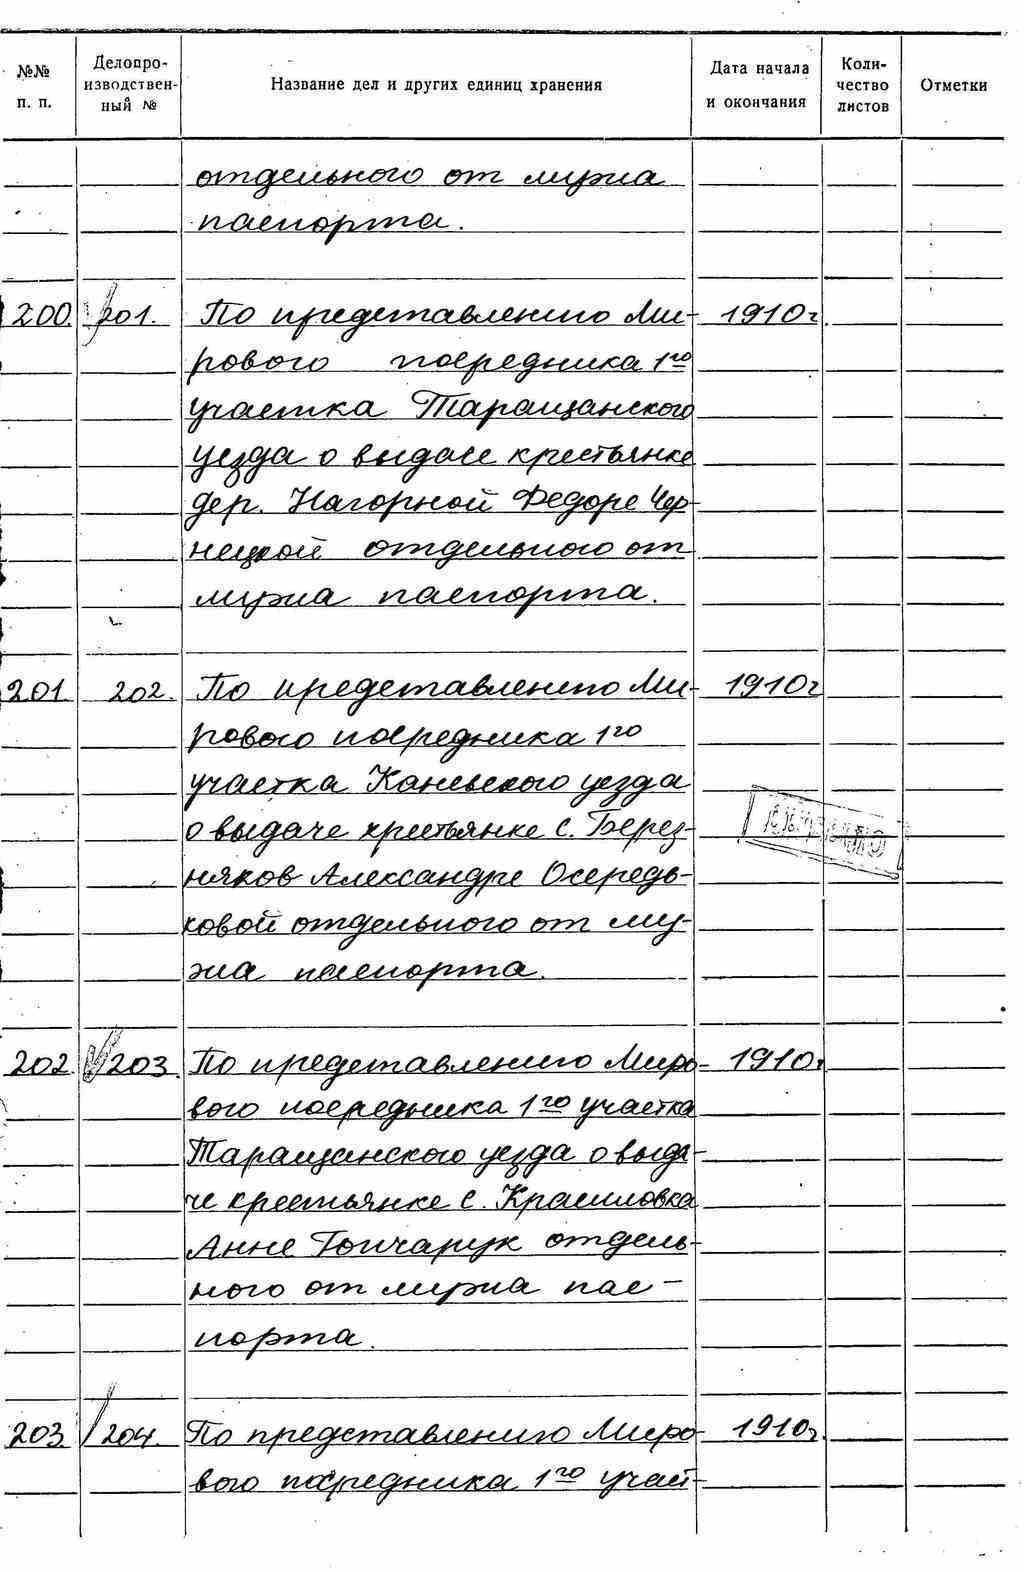 №№ п. п. Делопроизводственный № Название дел и других единиц хранения Дата начала и окончания Количество листов Отметки
отдельного от мужа
паспорта.
200. 201. По представлению Ми- 1910г.
рового посредника 1го
участка Таращанского
уезда о выдаче крестьянке
дер. Нагорной Федоре Чер-
нецкой отдельного от
мужа паспорта.
201 202. По представлению Ми- 1910г
рового посредника 1го
участка Каневского уезда
о выдаче крестьянке с. Берез-
няков Александре Осередь-
ковой отдельного от му-
жа паспорта.
202. 203. По представлению Миро- 1910г
вого посредника 1го участка
Таращанского уезда о выда-
че крестьянке с. Красиловка
Анне Гончарук отдель-
ного от мужа пас-
порта.
203. 204. По представлению Миро- 1910г.
вого посредника 1го участ-